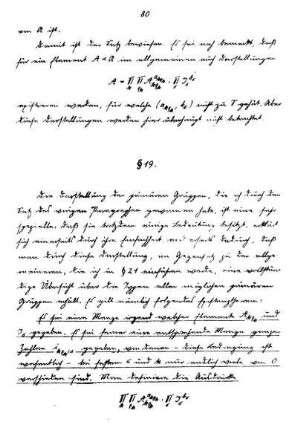 80
von A ist.
Damit ist der Satz bewiesen. Es sei noch bemerkt, daß
für ein Element A < A im allgemeinen auch Darstellungen
existieren werden, für welche nicht zu T gehört. Aber
diese Darstellungen werden hier überhaupt nicht betrachtet
§ 19.
Die Darstellung der primären Gruppen, die ich durch den
Satz des vorigen Paragraphen gewonnen habe, ist eine sehr
spezielle. Daß sie trotzdem einige Bedeutung besitzt, erklärt
sich einerseits durch ihre Einfachheit andererseits dadurch, daß
man durch diese Darstellung, im Gegensatz zu der allge-
meineren, die ich in § 21 einführen werde, eine vollstän-
dige Übersicht über die Typen aller möglichen primären
Gruppen erhält. Es gilt nämlich folgendes
Es sei eine Menge irgend welcher Elemente und
gegeben. Es sei ferner eine entsprechende Menge ganzer
Zahlen gegeben, von denen diese Bedingung ist
wesentlich bei festem und nur endlich viele von 0
verschieden sind. Man definiere die Ausdrücke